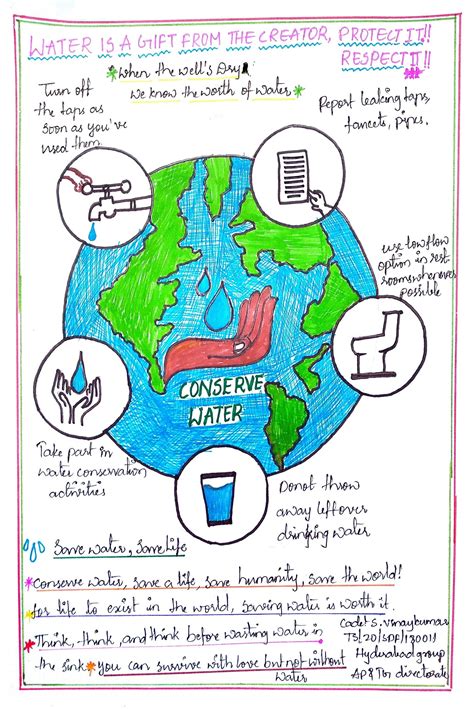 WATER IS A GIFT FROM THE CREATOR, PROTECT IT!!
RESPECT IT!!
*When the well's Dry,
we know the worth of water*
Turn off
the taps as
soon as you've
used them.
Report leaking taps,
faucets, pipes.
use low flow
option in rest
rooms whenever
possible
CONSERVE
WATER
Take part in
water conservation
activities
Donot throw
away leftover
drinking water
Save water, Save life
*Conserve water, save a life, save humanity, save the world!
for life to exist in the world, saving water is worth it.
*Think, think, and think before wasting water in
the sink*you can survive with love but not without
Water
Cadet S. Vinaykumar
TS/20/SPP/130011
Hyderabad group
AP & Tn directorate